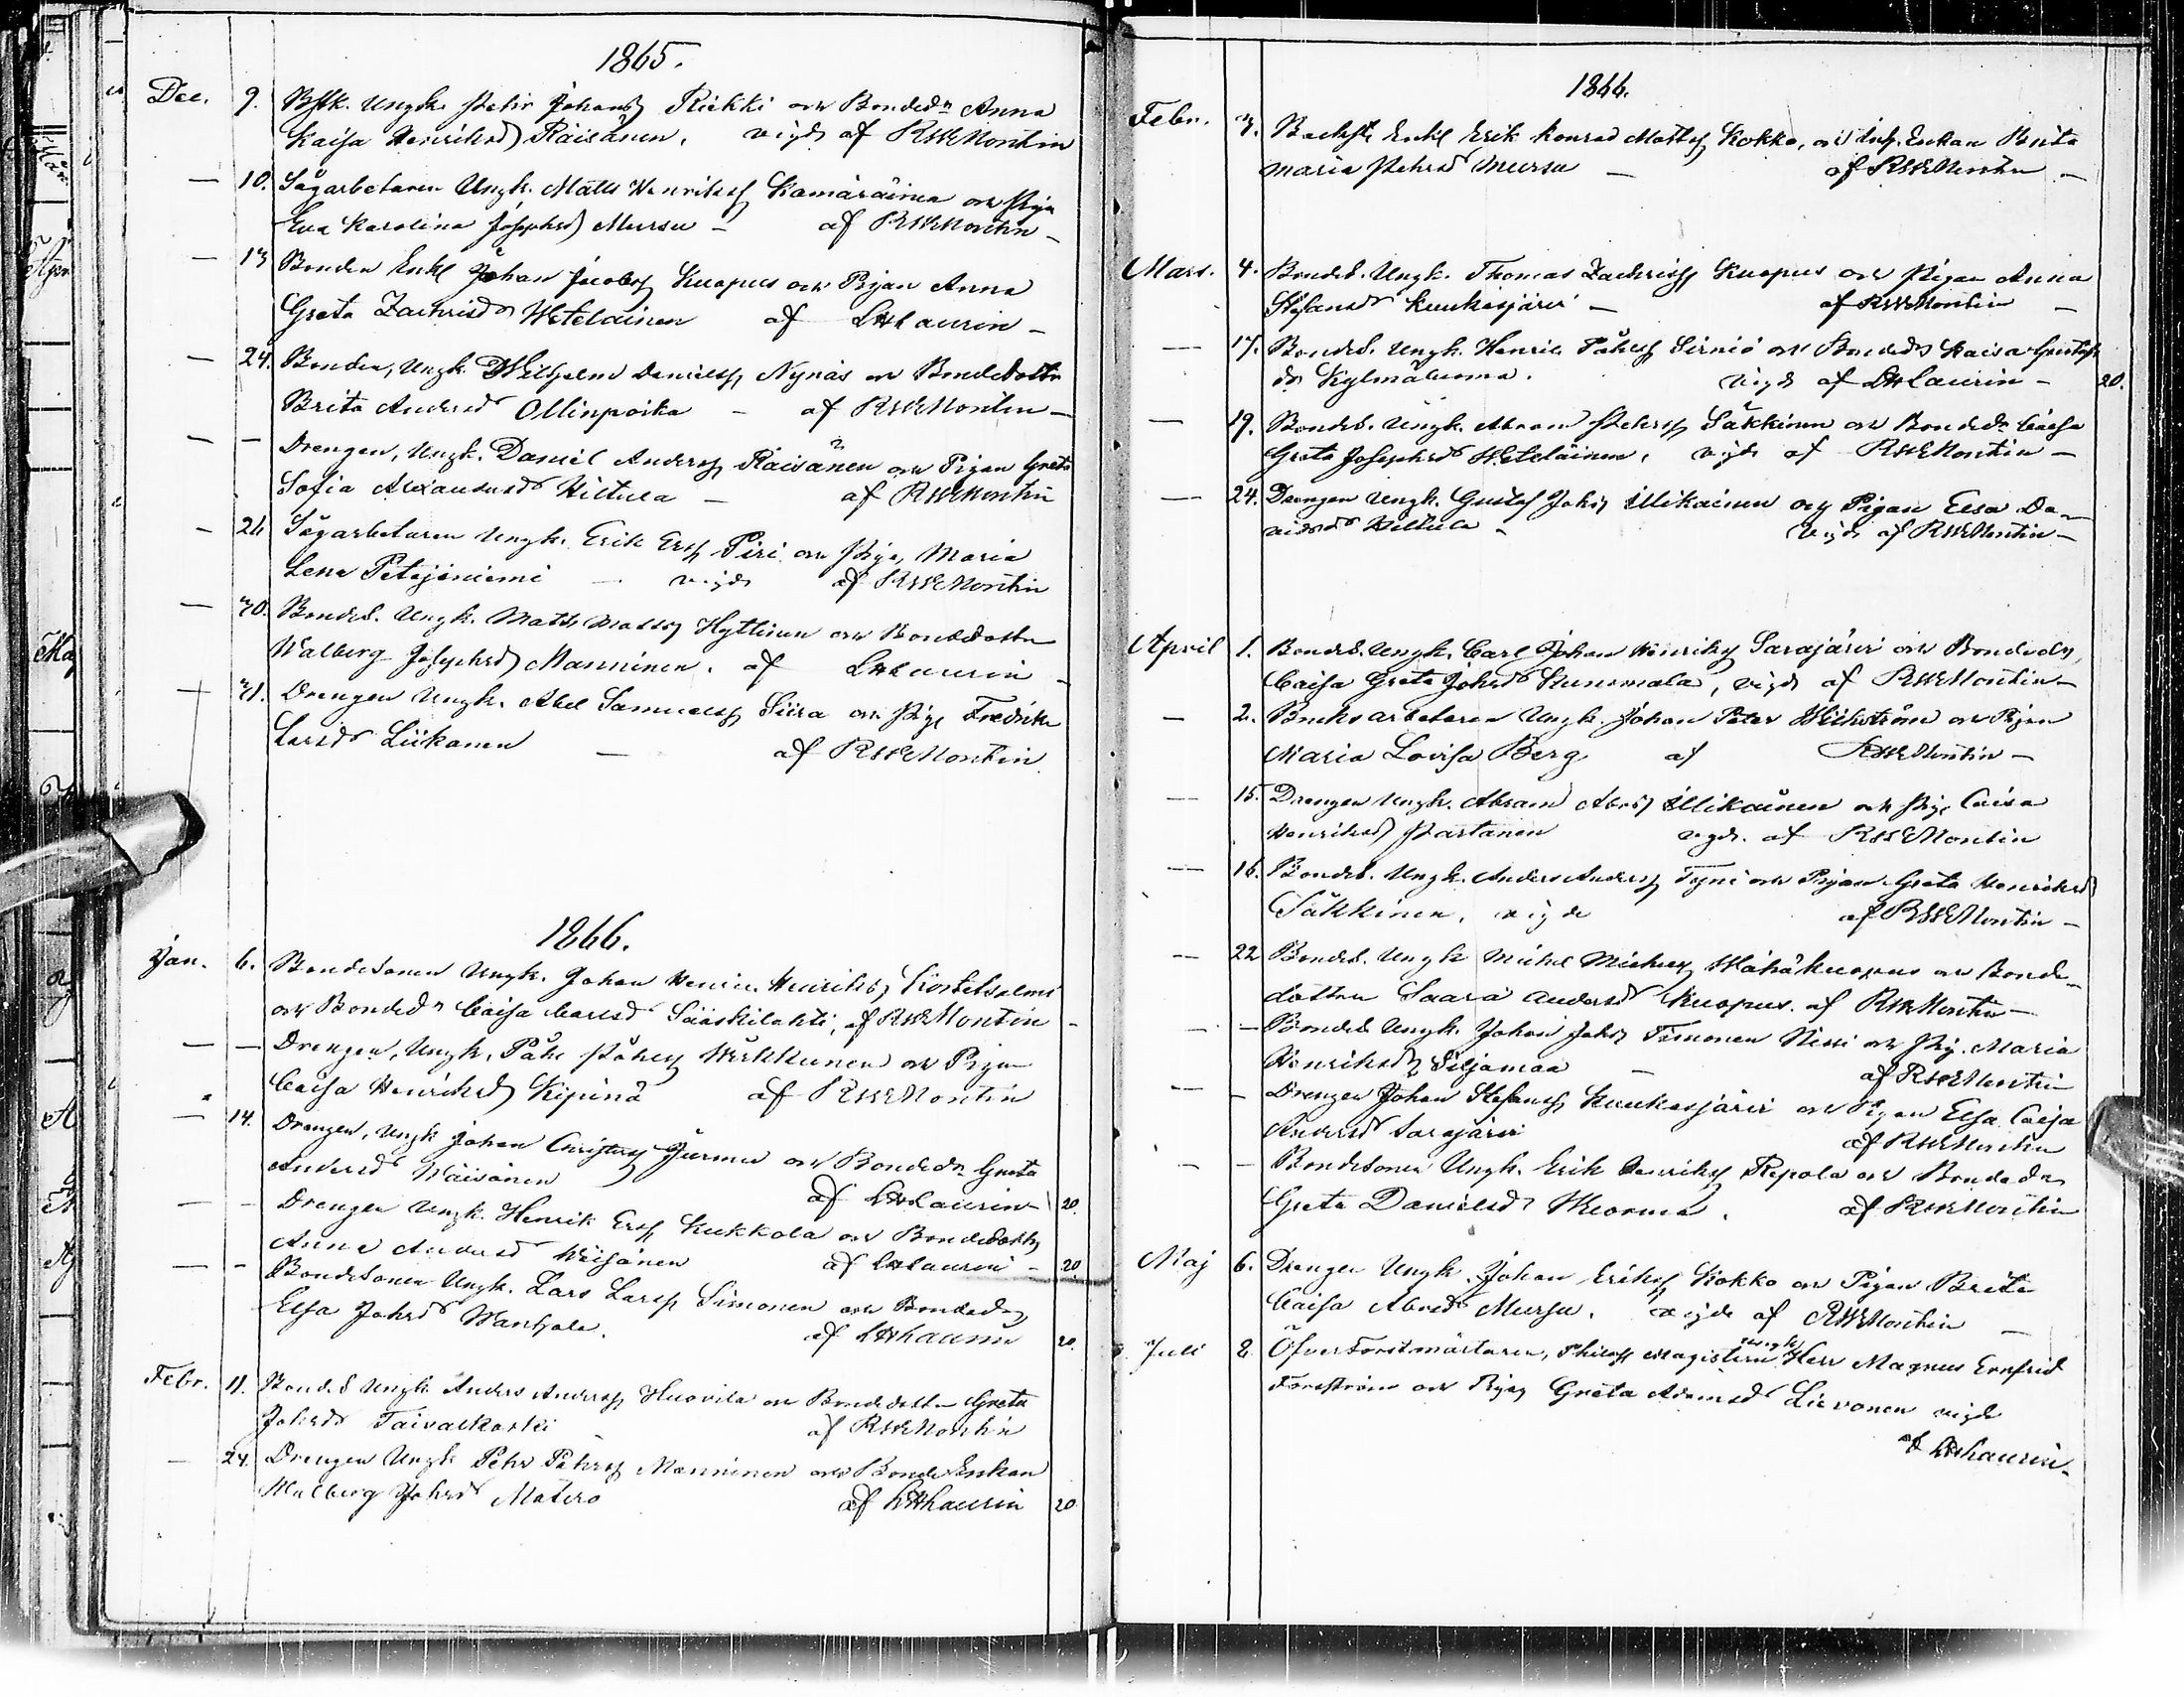 1865.
Dec. 9. Bstk. Ungk. Petter Johanss Riekki och Bonded:r Anna
Kaisa Henriksd Räisänen, vigd af RWEMontin
— 10. Sågarbetaren Ungk. Matts Henrikss Kämäräinen och Piga
Eva Karolina Josephsd Mursu – af RWEMontin –
— 13 Bonden Enkl Johan Jacobss Kuopus och Pigan Anna
Greta Zachrisdr Wetelainen af LHLaurin –
— 24. Bonden, Ungk. Wilhjelm Danielss Nynäs och Bondedottr
Brita Andersdr Ollinpoika – af RWEMontin —
— — Drengen, Ungk. Daniel Anderss Räisänen och Pigan Greta
Sofia Alexandersdr Hiltula – af RWEMontin
— 26 Sågarbetaren Ungk. Erik Erss Piri och Piga, Maria
Lena Petäjäniemi – vigde af RWEMontin
— 30. Bondes. Ungk. Matts Matss Hyttinen och Bondedottr
Walberg Josephsd Manninen. af LHLaurin –
— 31. Drengen Ungk. Abel Samuelss Siira och Pig. Fredrika
Larsdr Liikanen — af RWEMontin
1866.
Jan. 6. Bondesonen Ungk. Johan Henric Henrikss
och Bonded:r Caisa Carlsdr Sääskilahti, af RWEMontin –
— — Drengen, Ungk. Påhl Påhlss Werkkunen och Pigan
Caisa Henriksd Kipinä af RWEMontin
— 14. Drengen, Ungk Johan Christerss Jurmu och Bonded:r Greta
Andersdr Wäisänen af LHLaurin 20.
— — Drengen Ungk. Henrik Erss Kukkola och Bondedottr
Anna Andersd Wäisänen af LHLaurin – 20.
— — Bondesonen Ungk. Lars Larss Simonen och Bondedr
Elsa Johsdr Wanhala. af LHLaurin 20.
Febr. 11. Bondes Ungk. Anders Anderss Huovila och Bondedottn Greta
Johsdr Taivalkoski af RWEMontin
— 24. Drengen Ungk Pehr Pehrss Manninen och Bonde Enkan
Walborg Johsdr Matero af LHLaurin 20
1866.
Febr. 3. Enkl Erik Konrad Mattss Kokko, och Enkan Brita
Maria Pehrsd Mursu – af RWEMontin –
Mars. 4. Bondes. Ungk. Thomas Zachriss Kuopus och Pigan Anna
Stefansdr Kuukasjärvi – af RWEMontin –
— 17. Bondes. Ungk. Henric Påhlss Sirniö och Bondedr Kaisa Gustafs
dr Kylmäluoma. vigde af LHLaurin – 20.
— 19. Bondes. Ungk. Abram Pehrss Säkkinen och Bonded:r Caisa
Greta Josephsd Wetelainen, vigde af RWEMontin –
— 24. Drengen Ungk. Gustaf Johss Illikainen och Pigan Elsa Da-
vidsdr Hiltula – vigde af RWEMontin –
April 1. Bondes. Ungk. Carl Johan Henrikss Sarajärvi och Bondedr,
Caisa Greta Johsdr Kunnmala, vigde af RWEMontin –
— 2. Bruksarbetaren Ungk. Johan Peter Wikström och Pigan
Maria Lovisa Berg af RWEMontin –
— 15. Drengen Ungk. Abram Abrss Illikainen och Pig. Caisa
Henriksd Partanen vigde. af RWEMontin
— 16. Bondes. Ungk. Anders Anderss Tyni och Pigan Greta Henriksd
Säkkinen, vigde af RWEMontin –
— 22 Bondes. Ungk Michel Michelss Wähäkuopus och Bonde-
dottren Saara Andersdr Kuopus. af RWEMontin –
— — Bondes Ungk. Johan Johss Timonen Nissi och Pig. Maria
Henriksd Siljamaa – af RWEMontin
— — Drengen Johan Stefanss Kuukasjärvi och Pigan Elsa Caisa
Andersd Sarajärvi af RWEMontin
— — Bondesonen Ungk. Erik Henrikss Repola och Bondedr
Greta Danielsdr Wuorma. af RWEMontin
Maj 6. Drengen Ungk. Johan Erikss Kokko och Pigan Brita
Caisa Abrsdr Mursu. vigde af RWEMontin –
Juli 8. Öfverforstmästaren, Philos Magistern Ungk Herr Magnus Ernfrid
Forsström och Piga Greta Adamsdr Lievonen vigde
af LHLaurin.